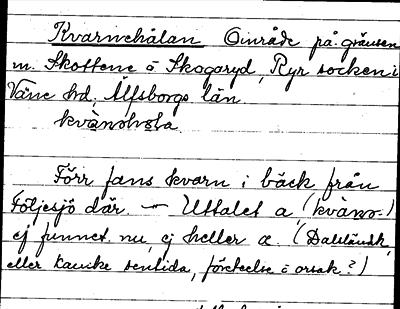 Kvarnehålan Område på gränsen
m. Skottene o Skogaryd, Ryr socken i
Väne hd. Älfsborgs län
kvànohola
Förr fans kvarn i bäck från
Följesjö där. — Uttalet a, (kvàno-)
ej funnet nu, ej heller æ. (Dalsländsk,
eller kanske sentida, företeelse o orsak?)